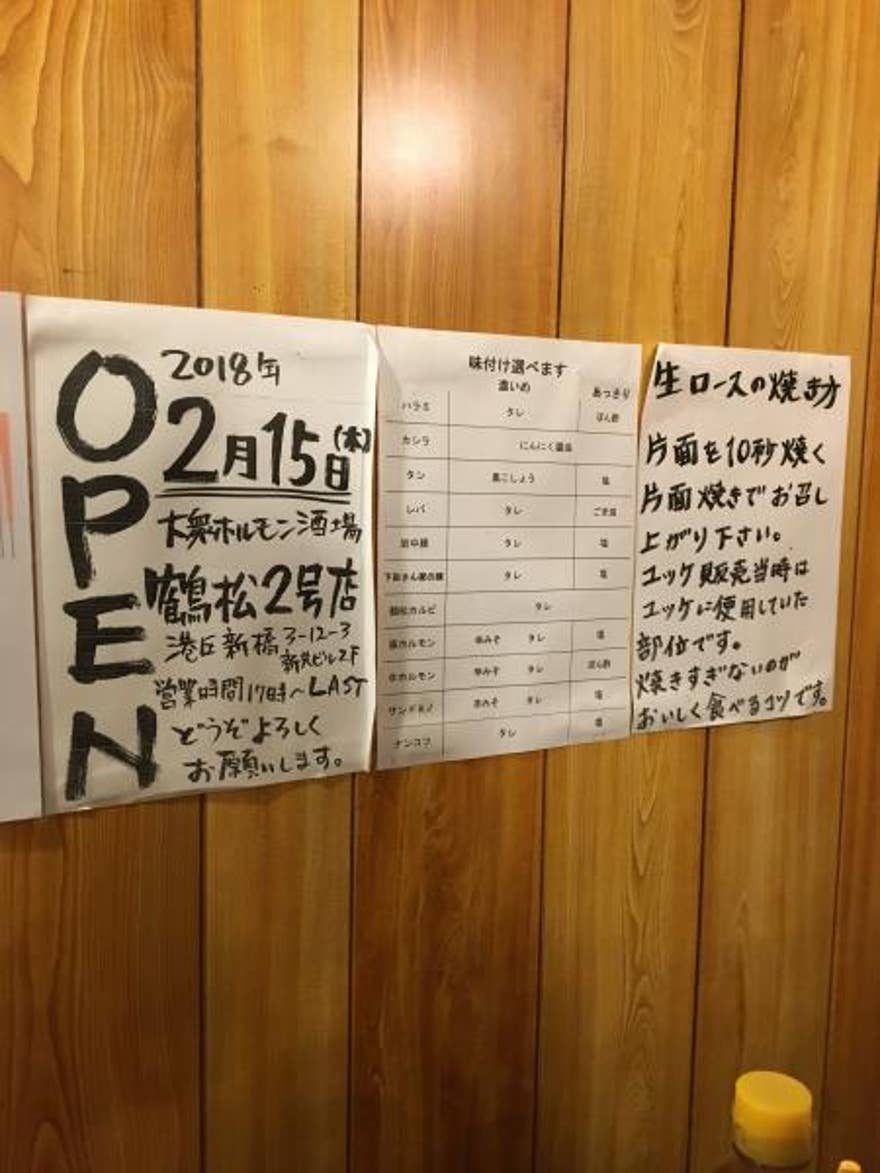 OPEN
2018年
2月15日(木)
大衆ホルモン酒場
鶴松2号店
港区新橋3-12-3
新栄ビル2F
営業時間17時～LAST
どうぞよろしく
お願いします。
味付け選べます
濃いめ あっさり
ハラミ タレ ぽん酢
カシラ にんにく醤油
タン 黒こしょう 塩
レバ タレ ごま油
タレ 塩
タレ 塩
鶴松カルビ タレ
豚ホルモン 辛みそ タレ 塩
牛ホルモン 辛みそ タレ ぽん酢
サンドミノ 辛みそ タレ 塩
ナンコツ タレ 塩
生ロースの焼き方
片面を10秒焼く
片面焼きでお召し
上がり下さい。
ユッケ販売当時は
ユッケに使用していた
部位です。
焼きすぎないのが
おいしく食べるコツです。